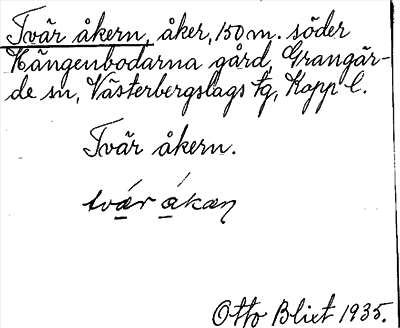 Tvär åkern, åker, 150 m. söder
Hängenbodarna gård, Grangär-
de sn, Västerbergslags tg, Kopp l.
Tvär åkern.
tvǽr ákæɳ
Otto Blixt 1935.